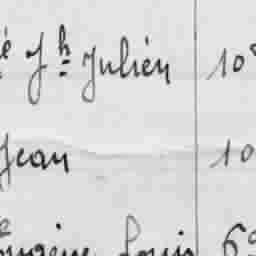 é Jh Julien 10
Jean 10
Eugène Louis 6